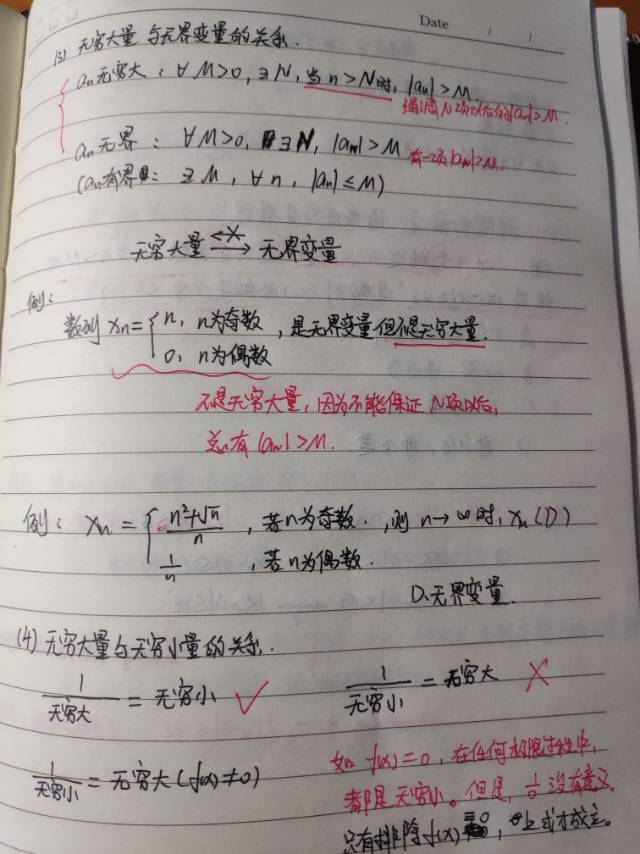 Date / /
(3) 无穷大量与无界变量的关系.
an无穷大: ∀M>0, ∃N, 当n>N时, |an|>M.
强调N项以后的|an|>M.
an无界: ∀M>0, ∃N, |an|>M 有一项|an|>M.
(an有界: ∃M, ∀n, |an|≤M)
无穷大量 ⇄ 无界变量
例:
数列 xn= { n, n为奇数 , 是无界变量但不是无穷大量.
0, n为偶数
不是无穷大量, 因为不能保证N项以后,
总有|an|>M.
例: xn = { (n²+√n)/n , 若n为奇数. , 则 n→∞时, xn (D)
1/n , 若n为偶数.
D.无界变量.
(4) 无穷大量与无穷小量的关系.
1/无穷大 = 无穷小 ✓ 1/无穷小 = 无穷大 ✗
1/无穷小 = 无穷大 (f(x)≠0)
如 f(x)=0, 在任何极限过程中,
都是无穷小。但是, 1/0 没有意义.
只有排除f(x)≡0, 上式才成立。